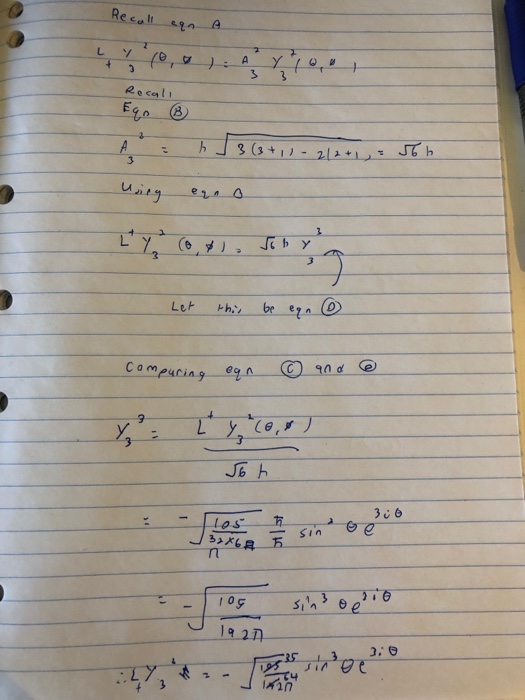 Recall eqn A
L₊ Y₃² (θ, ø) = A₃² Y₃² (θ, ø)
Recall
Eqn Ⓑ
A₃² = ħ √(3(3+1) - 2(2+1)) = √6 ħ
Using eqn
L⁺ Y₃² (θ, ø) = √6 ħ Y₃³
Let this be eqn Ⓓ
Comparing eqn Ⓒ and
Y₃³ = L⁺ Y₃² (θ, ø) / √6 ħ
= - √(105 / 32×6 π) ħ/ħ sin³ θ e^3iθ
= - √(105 / 192π) sin³ θ e^3iθ
∴ L₊ Y₃² = - √(35 / 64 π) sin³ θ e^3iθ